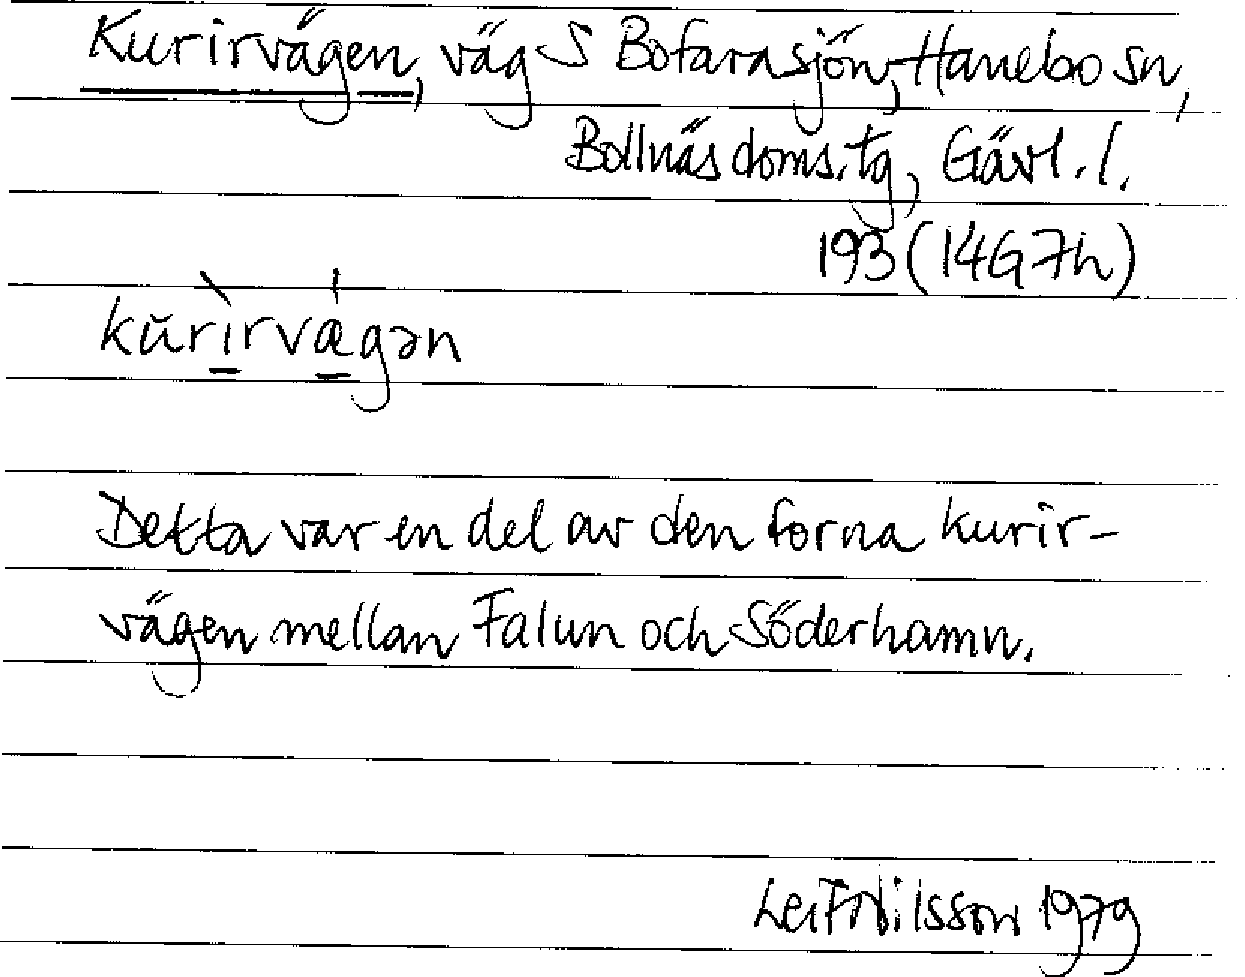 Kurirvägen, väg S Bofarasjön, Hanebo sn,
Bollnäs doms.tg, Gävl. l.
193 (14G7h)
kŭrı̀rvǽgən
Detta var en del av den forna kurir-
vägen mellan Falun och Söderhamn.
Leif Nilsson 1979